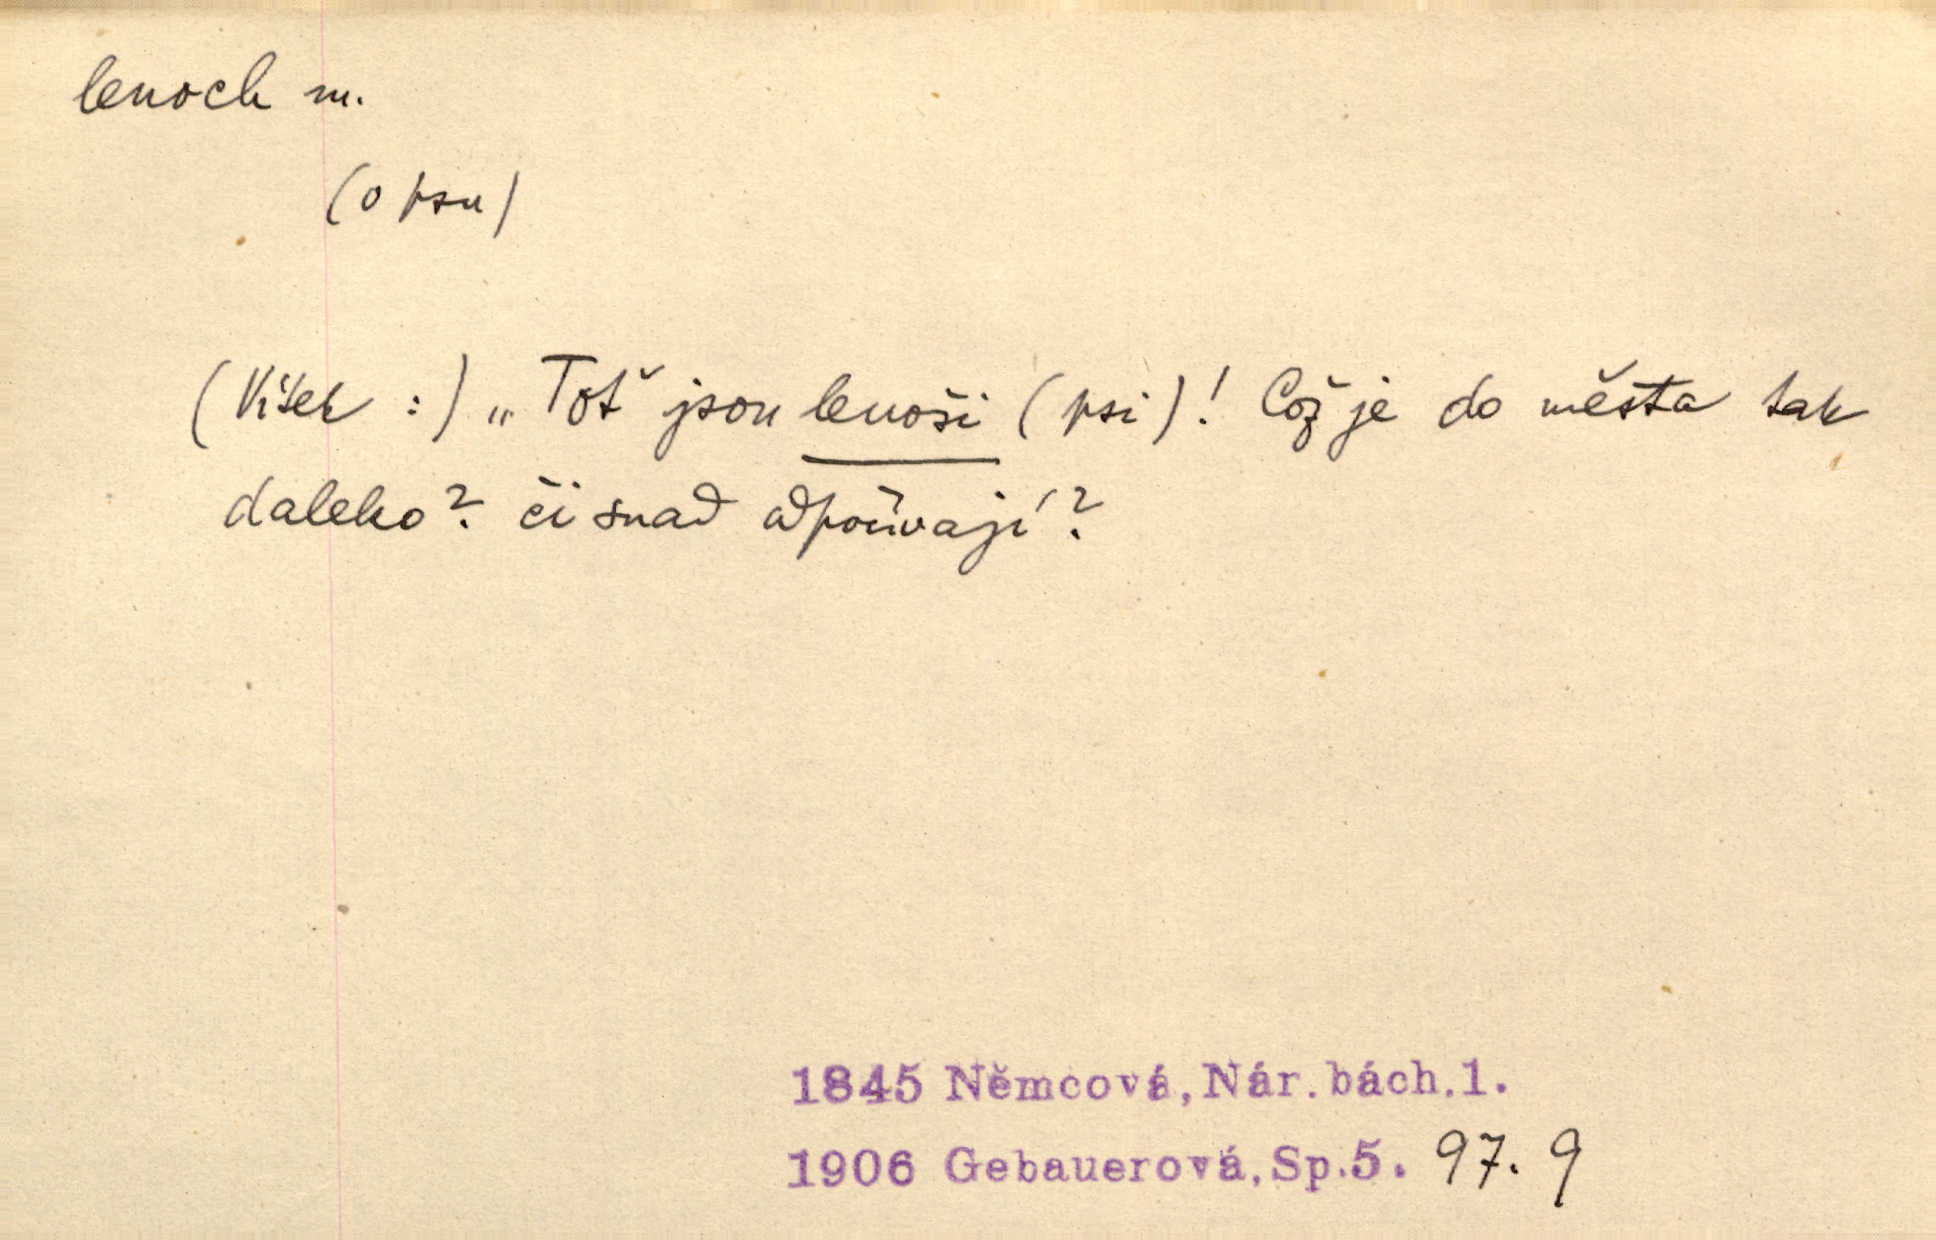 lenoch m.
(o psu)
(Víšek :) „Toť jsou lenoši (psi)! Což je do města tak
daleko? či snad odpočívají?
1845 Němcová, Nár. bách. 1.
1906 Gebauerová, Sp. 5. 97. 9